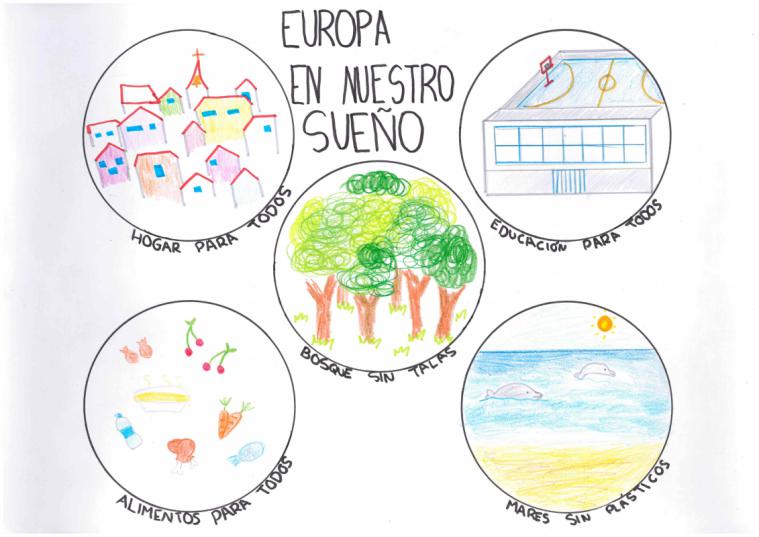 EUROPA
EN NUESTRO
SUEÑO
HOGAR PARA TODOS
EDUCACIÓN PARA TODOS
BOSQUE SIN TALAS
ALIMENTOS PARA TODOS
MARES SIN PLÁSTICOS